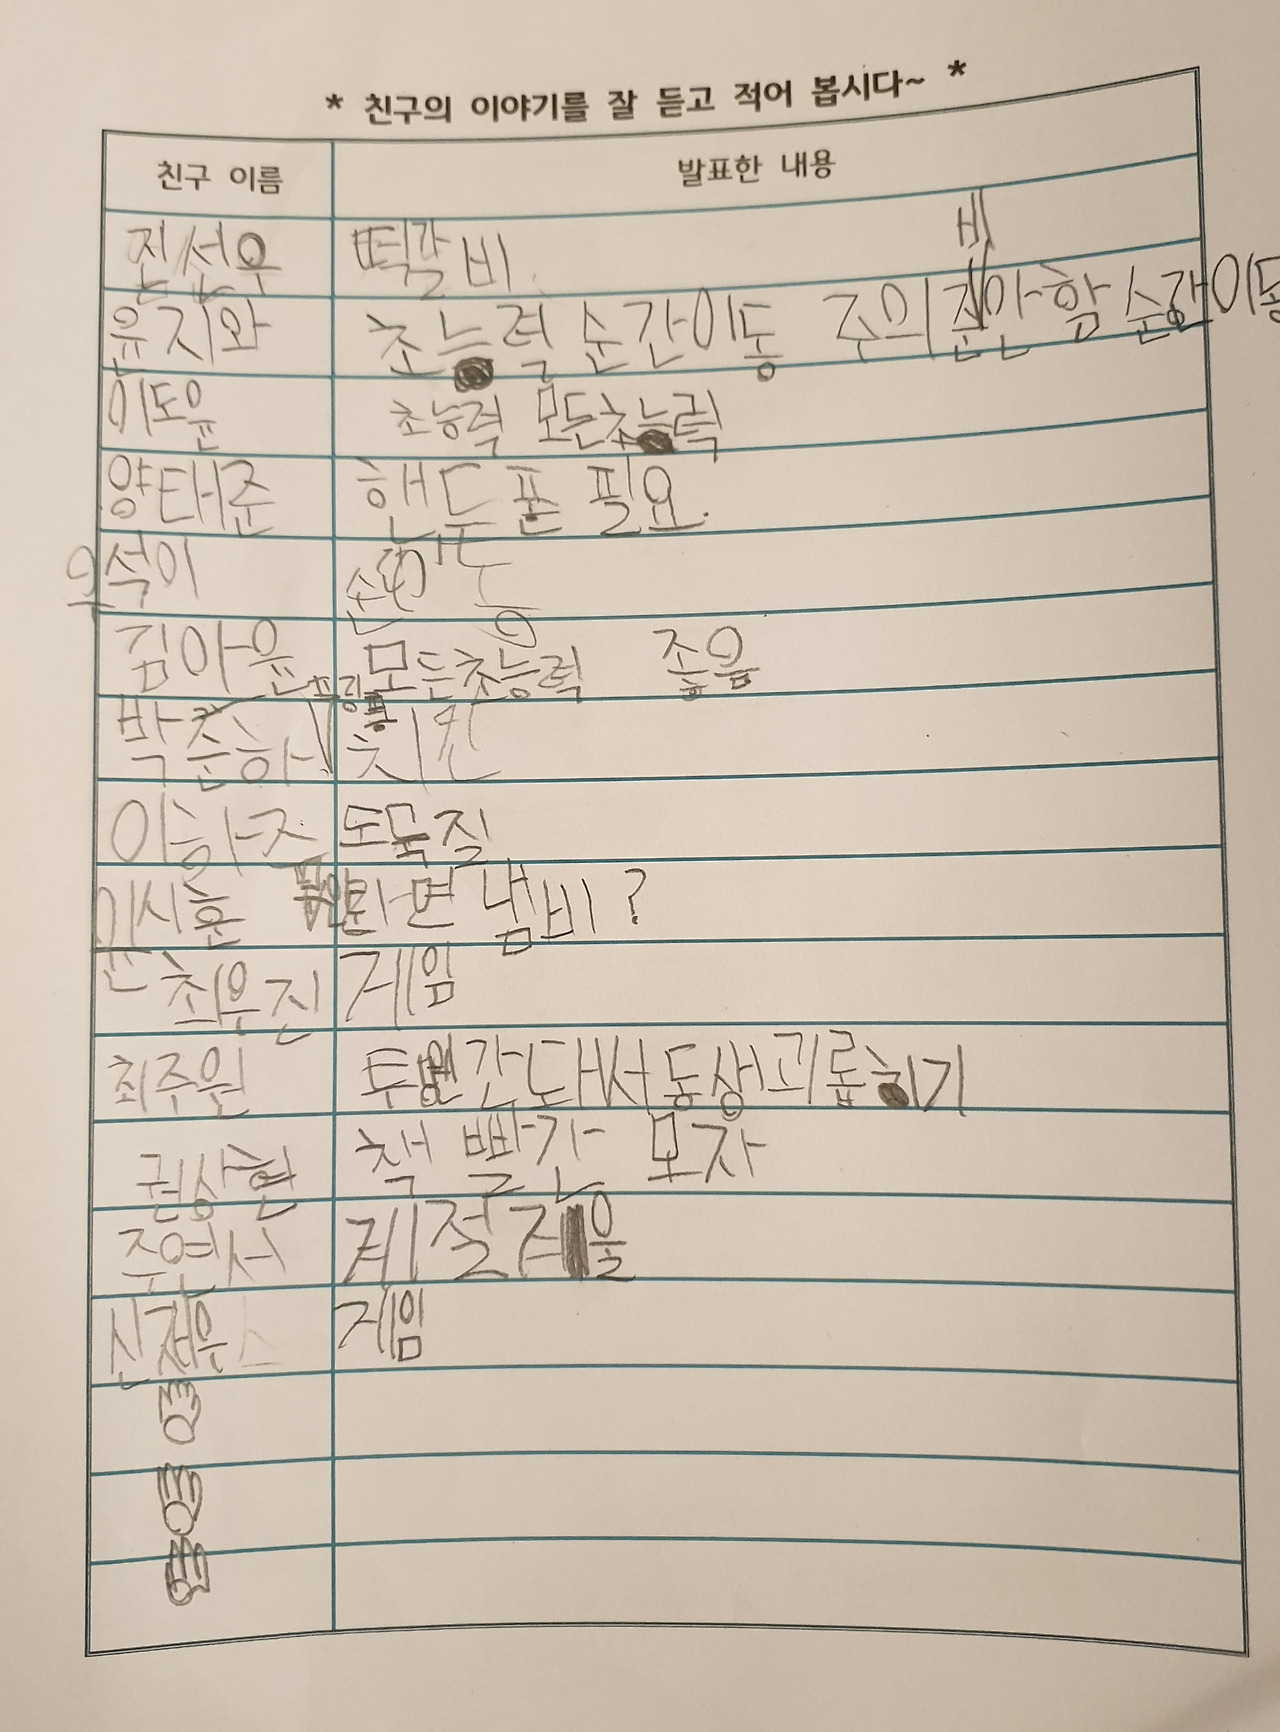 * 친구의 이야기를 잘 듣고 적어 봅시다~ *
친구 이름 발표한 내용
전선우 떡갈비
윤지와 초능력 순간이동 주의 준비 안함 순간이동
이도윤 초능력 모든초능력
양태준 핸드폰 필요
석이
김아윤 모든초능력 좋음
박준하 치킨
이하주 도묵질
이시훈 라면 냄비?
최우진 게임
최주원 투명 간 대서 동생괴롭히기
권상현 책 빨간 모자
주연서 계절 겨울
신재우 게임